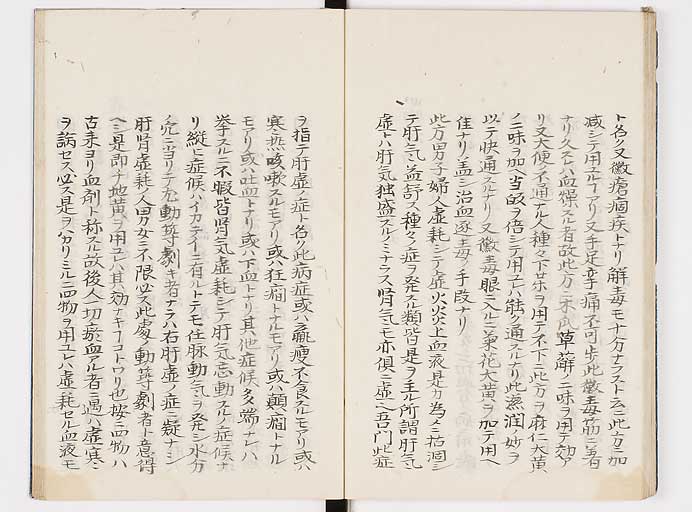 ト名ク又黴瘡痼疾トナリ解毒モ十分ナラストキハ此方ニ加
减シテ用立アリ又手足攣痛不可歩此黴毒筋ニ着
ナリ久クハ血燥スル者故此方ニ木瓜草薢ニ味ヲ用テ効ア
リ又大便不通ナル人種々下品ヲ用テ不下ニ此方ヲ麻仁大黄
ノ二味ヲ加ヘ当皈ヲ倍シテ用立ハ能ク通スルナリ此滋潤ノ妙ヲ
以テ快通スルナリ又黴毒眼ニ入ルニ菊花大黄ヲ加テ用ヘ
佳ナリ盖シ治血逐毒ノ手段ナリ
此方男子婦人虚耗シテ虚火炎上血液是カ為メニ枯涸シ
テ肝氣益舒ス種々ノ症ヲ発スル類皆是ヲ主ル所謂肝氣
虚ト八肝気独盛スルノミナラス腎気モ亦倶ニ虚ヘ吾門此症
ヲ指テ肝虚ノ症ト名ク此病症或ハ羸痩不食スルモアリ或ハ
寒熱咳嗽スルモアリ或ハ狂癎トナルモアリ或ハ顛癎トナル
モアリ或ハ吐血トナリ或ハ下血トナリ其他症候多端ナレハ
挙スルニ不暇皆腎気虚耗シテ肝気忘動スルノ症候ナ
リ縦ヒ症候ハイカテイニ有ルトテモ任脉動気ヲ発シ水分
ノ穴ニ当リテ尤動築劇キ者ナラハ右肝虚ノ症ニ疑ナシ
肝腎虚耗人男女ニ不限必ス此處ノ動築劇者ト意得
ヘシ是即チ地黄ヲ用ユレハ其効ナキフコトワリ也按ニ四物ハ
古来ヨリ血剤ト称スル故後人一切瘀血アル者ニ遇ハ虚寒ニ
ヲ論セス必ス是ヲハカリミル四物ヲ用ユレハ虚耗セル血液モ